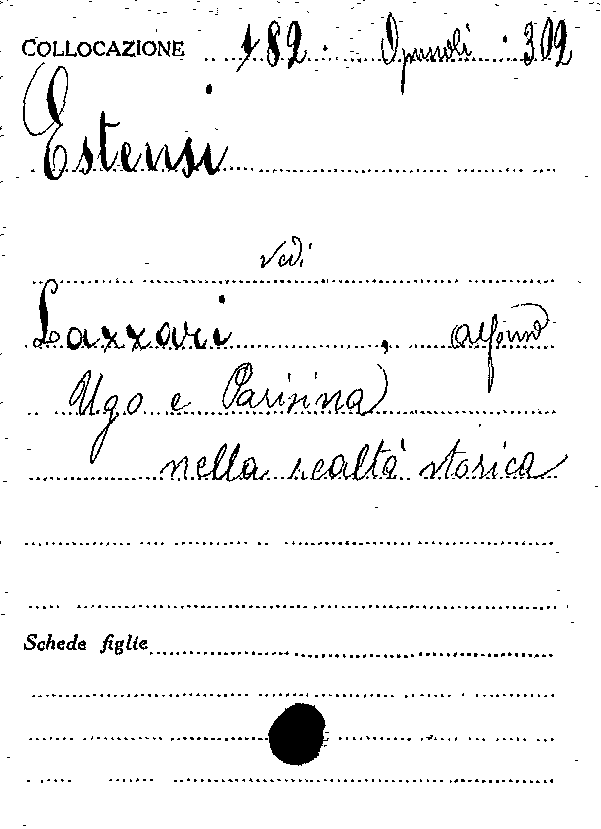 COLLOCAZIONE 182. Opuscoli. 302
Estensi
vedi
Lazzari, Alfonso
Ugo e Parisina
nella realtà storica
Schede figlie